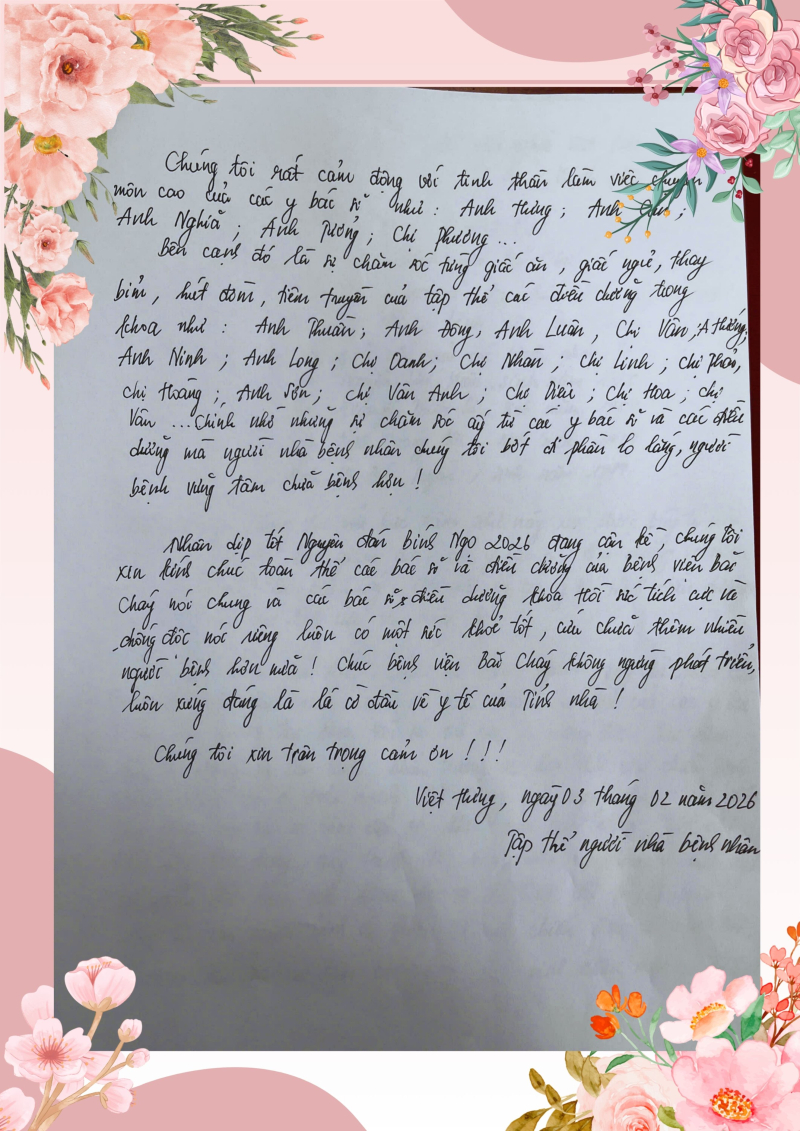 Chúng tôi rất cảm động với tinh thần làm việc chuyên
môn cao của các y bác sĩ như : Anh Hưng ; Anh
Anh Nghĩa ; Anh Tưởng ; Chị Phương ...
Bên cạnh đó là sự chăm sóc từng giấc ăn , giấc ngủ, thay
bỉm , hút đờm , tiêm truyền của tập thể các điều dưỡng trong
khoa như : Anh Thuần ; Anh Đông, Anh Luân , Chị Vân ; A
Anh Ninh ; Anh Long ; Chị Oanh ; Chị Nhàn ; Chị Linh ; Chị Thảo,
chị Hoàng ; Anh Sơn ; chị Vân Anh ; Chị Diệu ; Chị Hoa ; chị
Vân ... Chính nhờ những sự chăm sóc ấy từ các y bác sĩ và các điều
dưỡng mà người nhà bệnh nhân chúng tôi bớt đi phần lo lắng, người
bệnh vững tâm chữa bệnh hơn !
Nhân dịp tết Nguyên đán Bính Ngọ 2026 đang cận kề, chúng tôi
xin kính chúc toàn thể các bác sĩ và điều dưỡng của bệnh viện Bãi
Cháy nói chung và các bác sĩ, điều dưỡng khoa Hồi sức tích cực và
chống độc nói riêng luôn có một sức khoẻ tốt , cứu chữa thêm nhiều
người bệnh hơn nữa ! Chúc bệnh viện Bãi Cháy không ngừng phát triển,
luôn xứng đáng là lá cờ đầu về y tế của Tỉnh nhà !
Chúng tôi xin trân trọng cảm ơn ! ! !
Việt Hưng , ngày 03 tháng 02 năm 2026
Tập thể người nhà bệnh nhân